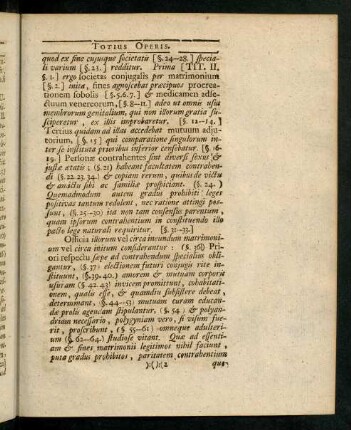 TOTIUS OPERIS.
quod ex fine cujuque societatis [§.24-28.] speciali varium [§.23.] redditur. Prima [TIT. II.
§.1.] ergo societas conjugalis per matrimonium
[§.2.] inita, fines agnoscebat præcipuos procreationem sobolis [§.5.6.7.] & medicamen adfectuum venereorum, [§.8-11.] adeo ut omnis usus
membrorum genitalium, qui non illorum gratia susciperatur, ex illis improbaretur. [§. 12-14.]
Tertius quodam ad illas accedebat mutuum adjutorium, [§.15] qui comparatione singulorum inter se instituta prioribus inferior censebatur. [§.16-
19.] Personæ contrahentes sint diversi sexus &
justæ ætatis; (§.21) habeant facultatem contrahendi (§.22.23.34.) & copiam rerum, quibus de victu
& amictu sibi ac familiæ prospiciant. (§.24.)
Quemadmodum autem gradus prohibiti leges
positivas tantum redolent, nec ratione attingi possunt, (§.25-30) ita non tam consensus parentum,
quam ipsorum contrahentium in constituendo illo
pacto lege naturali requiritur. [§.31-33.]
Officia illorum vel circa ineundum matrimonium vel circa initum considerantur: (§. 36) Priori respectu sæpe ad contrahendum specialius obligantur, (§.37) electionem futuri conjugii rite instituunt, (§.39-40.) amorem & mutuam corporis
usuram (§ 42.43) invicem promittunt, cohabitationem, qualis esse, & quamdiu subsistere debeat,
determinant, (§.44-53) mutuam curam educandæ prolis agendam stipulantur. (§.54) & polyandriam necessario, polygyniam vero, si visum fuerit, proscribunt, (§ 55-61) omneque adulterium (§. 62-64.) studiose vitant. Quæ ad essentiam & fines matrimonii legitimos nihil faciunt,
puta gradus prohibitos, paritatem contrahentium
):( ):( 2 quo-